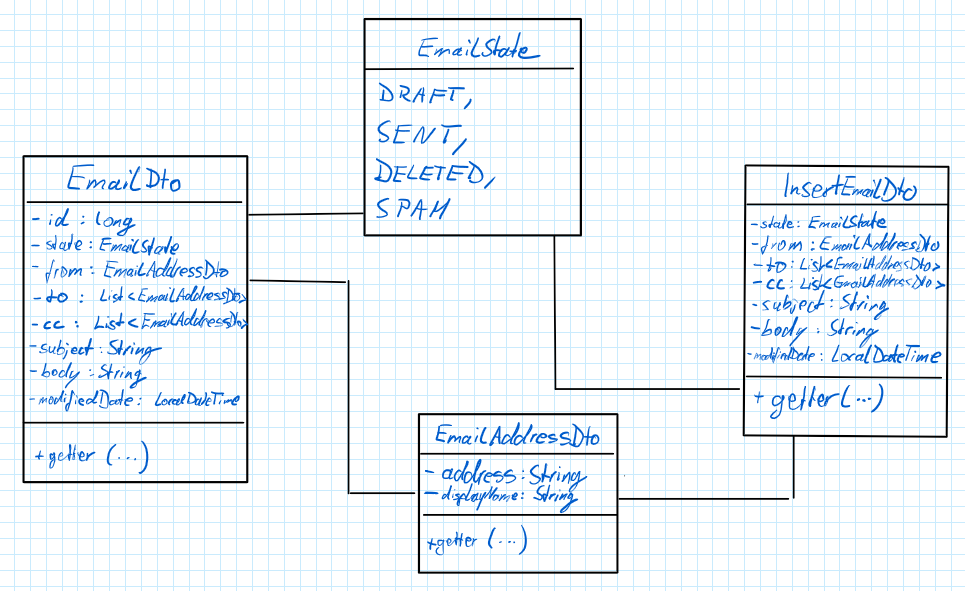 EmailState
DRAFT,
SENT,
DELETED,
SPAM
EmailDto
- id : long
- state : EmailState
- from : EmailAddressDto
- to : List<EmailAddressDto>
- cc : List<EmailAddressDto>
- subject : String
- body : String
- modifiedDate : LocalDateTime
+ getter (...)
InsertEmailDto
- state : EmailState
- from : EmailAddressDto
- to : List<EmailAddressDto>
- cc : List<EmailAddressDto>
- subject : String
- body : String
- : LocalDateTime
+ getter (...)
EmailAddressDto
- address : String
- displayName : String
+ getter (...)